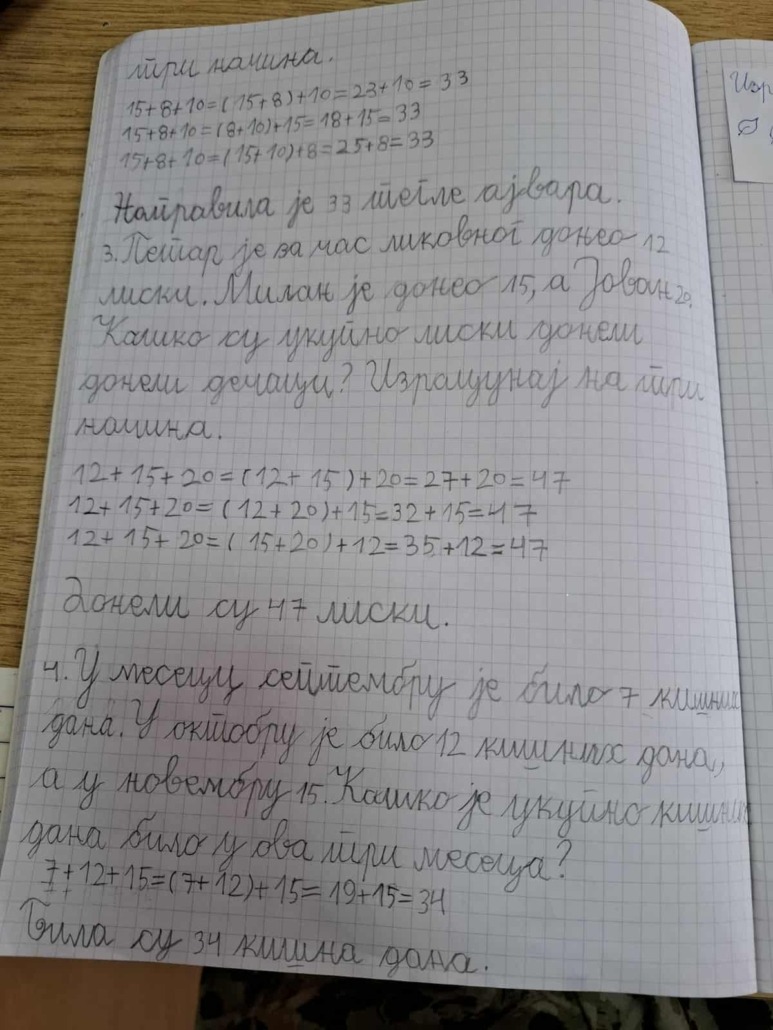 три начина.
15+8+10=(15+8)+10=23+10=33
15+8+10=(8+10)+15=18+15=33
15+8+10=(15+10)+8=25+8=33
Направила је 33 тегле ајвара.
3. Петар је за час ликовног донео 12
лиски. Милан је донео 15, а Јован 20.
Колико су укупно лиски донели
донели дечаци? Израчунај на три
начина.
12+15+20=(12+15)+20=27+20=47
12+15+20=(12+20)+15=32+15=47
12+15+20=(15+20)+12=35+12=47
Донели су 47 лиски.
4. У месецу септембру је било 7 кишних
дана. У октобру је било 12 кишних дана,
а у новембру 15. Колико је укупно кишних
дана било у ова три месеца?
7+12+15=(7+12)+15=19+15=34
Била су 34 кишна дана.